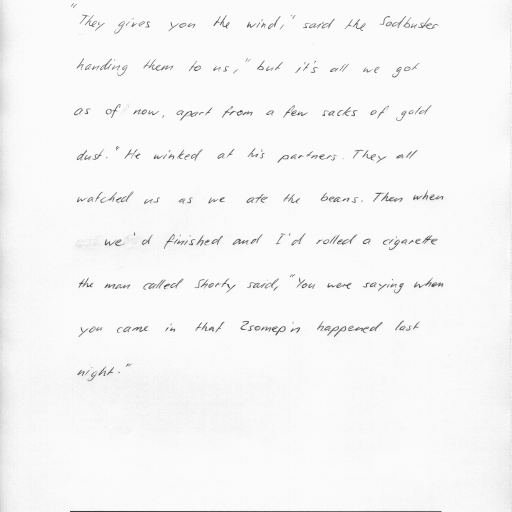 "They gives you the wind," said the Sodbuster
handing them to us, "but it's all we got
as of now, apart from a few sacks of gold
dust." He winked at his partners. They all
watched us as we ate the beans. Then when
we'd finished and I'd rolled a cigarette
the man called Shorty said, "You were saying when
you came in that 2somep'n happened last
night."